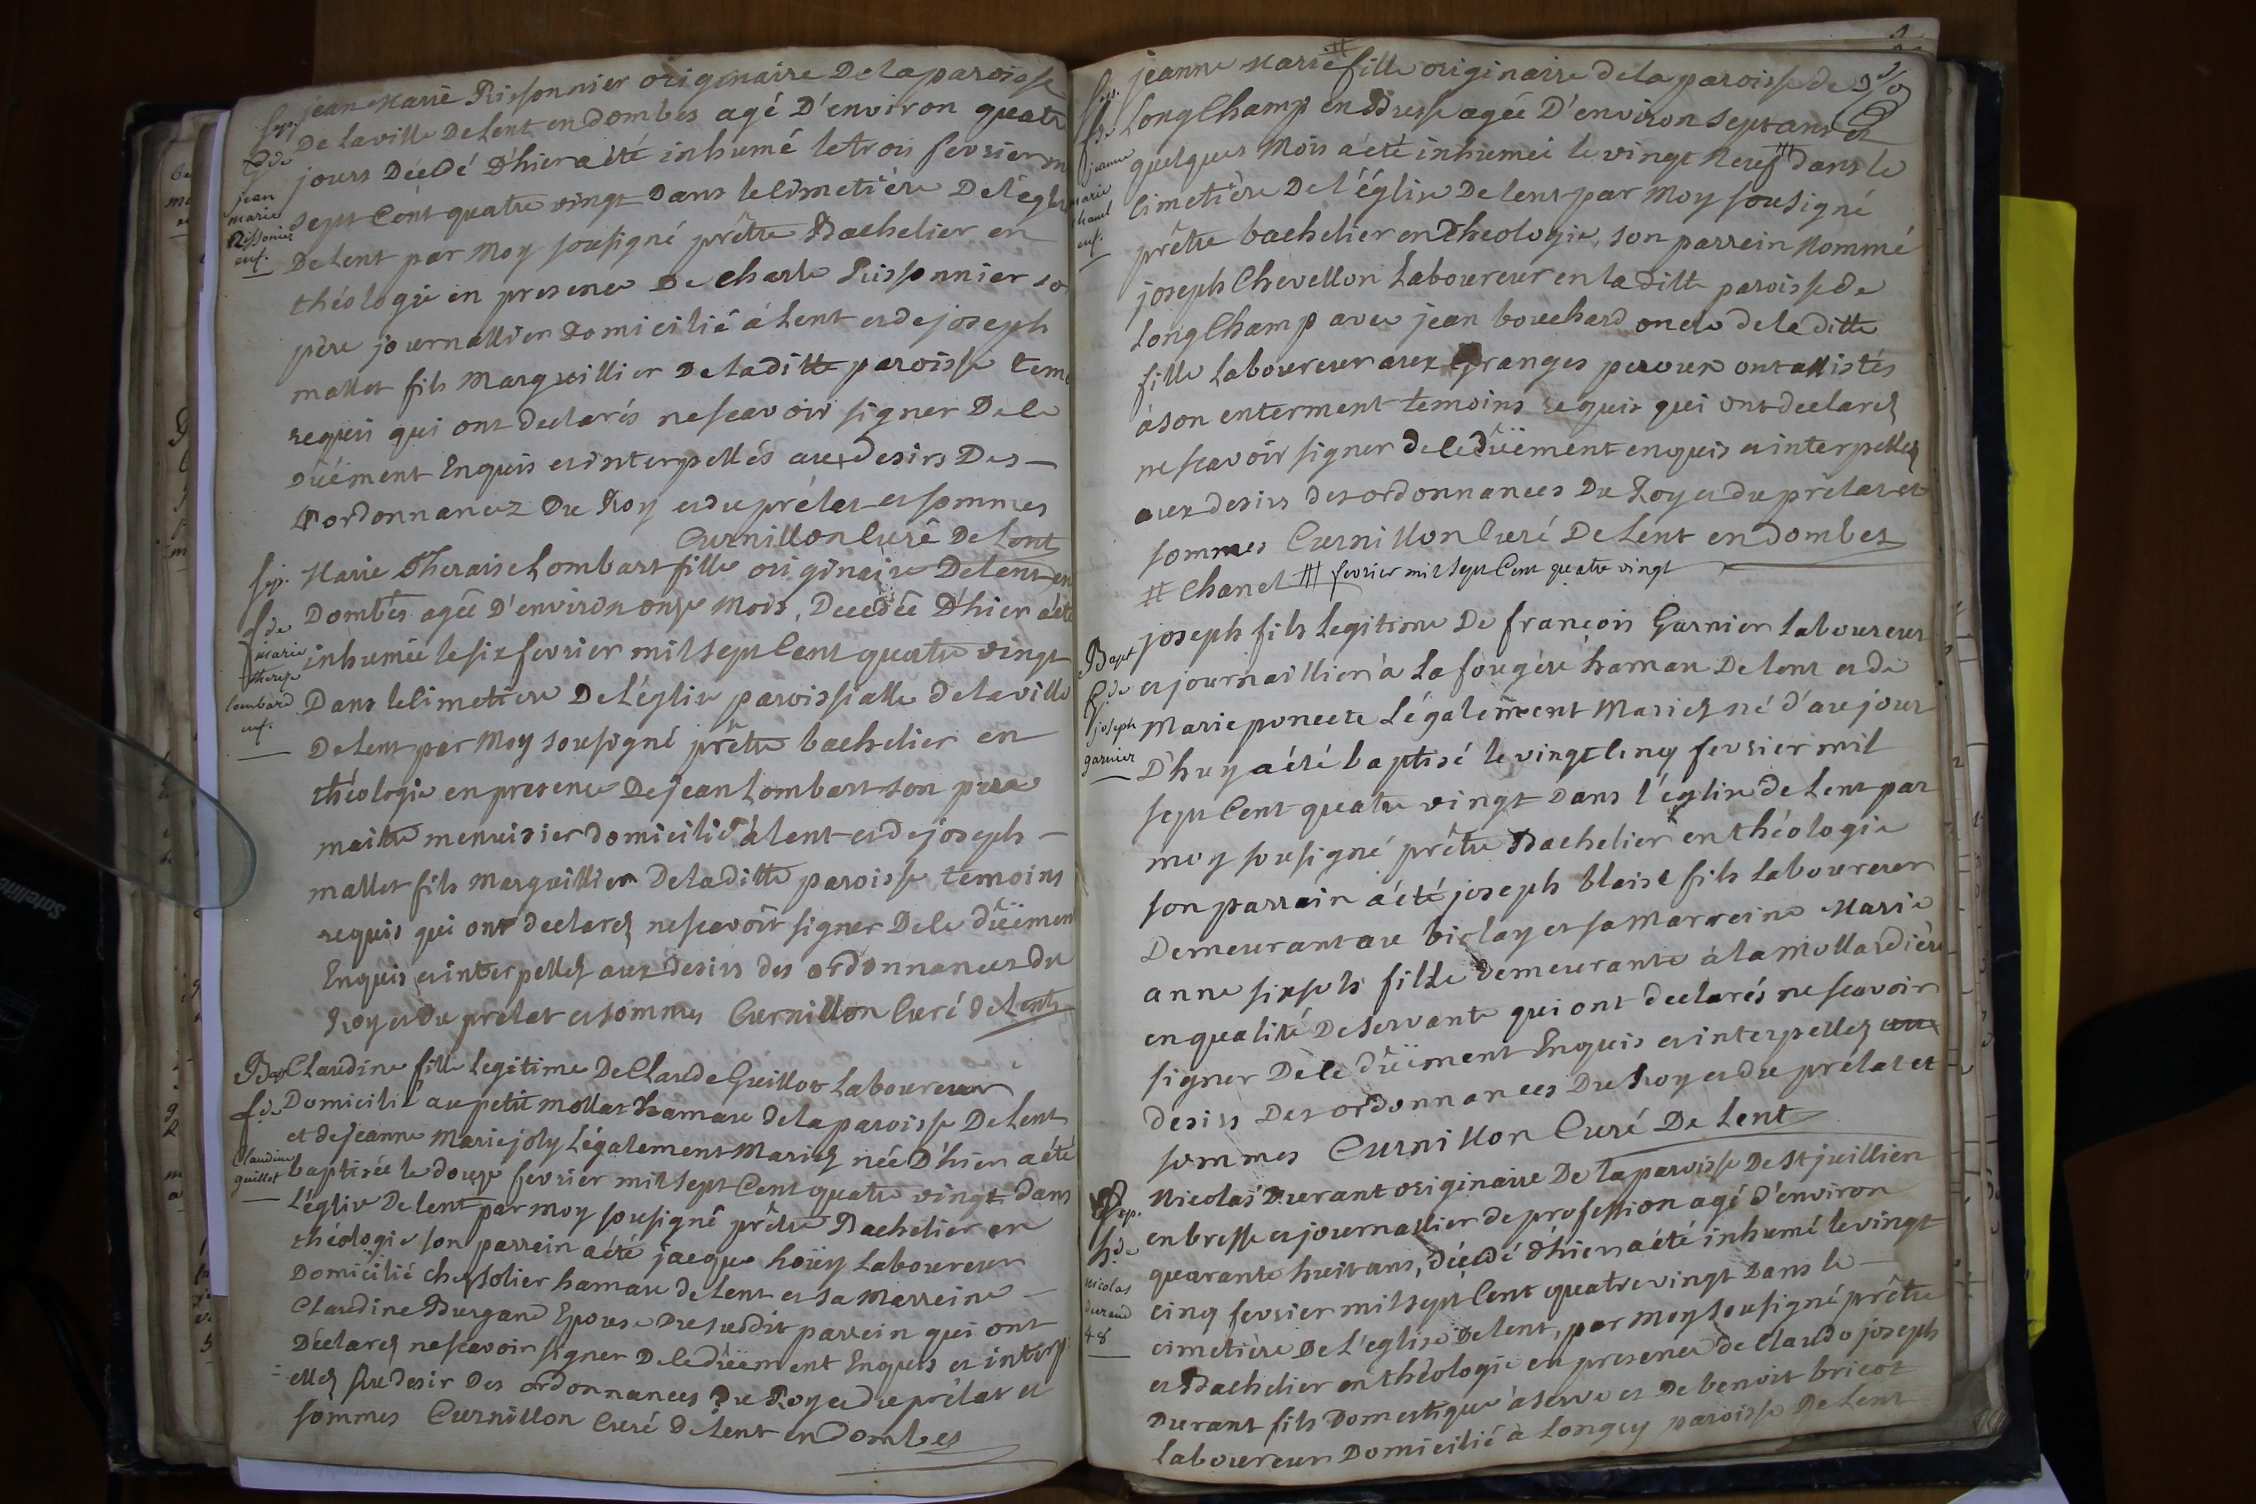 jean Marie Rissonnier originaire De la paroisse
De la ville De Lent en dombes agé D'environ quatre
jours Décédé D'hier a été inhumé le trois fevrier m
sept Cent quatre vingt Dans le cimetière De l'égli
De Lent par Moy sousigné prêtre Bachelier en
théologie en presence De charle Rissonnier so
père journallier Domicilié á Lent et de joseph
mallet fils Marguillier De la ditte paroisse tem
requis qui ont declarés ne scavoir signer De le
Dûëment Enquis et interpellés aux desirs Des
ordonnances Du Roy et du prélat et sommes
Curnillon Curé De Lent
sep.
de
jean
marie
Rissonier
enf.
Marie Theraise Lombart fille originaire De Lent en
Dombes agée D'environ onze Mois, Decedée D'hier a été
inhumée le six fevrier mil sept Cent quatre vingt
Dans le cimetiere De L'église paroissialle de la ville
De Lent par Moy sousigné prêtre bachelier en
théologie en presence De jean Lombart son pere
maitre menuisier domicilié á lent et de joseph
mallet fils Marguillier De la ditte paroisse temoins
requis qui ont declarez ne scavoir signer De le dûëment
Enquis et interpellez aux desirs des ordonnances du
Roy et du prélat et sommes Curnillon Curé de Lent
sep.
f de
marie
therese
lombard
enf.
Claudine fille Legitime De Claude Guillot Laboureur
Domicilié au petit mollat hamau de la paroisse De Lent
et de jeanne Marie joly Légalement Mariez née D'hier a été
baptisée le douze fevrier mil sept Cent quatre vingt dans
L'église De Lent par moy sousigné prêtre Bachelier en
théologie son parrein a été jacque Laboureur
Domicilié chez solier hamau de Lent et sa Marreine
Claudine Burgand Epouse Du suddit parrein qui ont
Déclarez ne scavoir signer De le dûëment Enquis et interp
ellez Au desir Des ordonnances Du Roy et du prélat et
sommes Curnillon Curé de Lent en Dombes
Bap
f. de
Claudine
guillot
jeanne Marie # fille originaire de la paroisse de
Long Champ en Bresse agée D'environ sept ans et
quelques Mois a été inhumée le vingt Neuf ## dans le
cimetière De l'église De lent par Moy sousigné
prêtre bachelier en Theologie, son parrein Nommé
joseph Chevellon Laboureur en la ditte paroisse de
Long Champ avec jean bouchard oncle de la ditte
fille Laboureur aux granges ont assistés
à son enterment temoins requis qui ont declarez
ne scavoir signer de le dûëment enquis et interpellez
aux desirs des ordonnances Du Roy et du prélat et
sommes Curnillon Curé De Lent en dombes
# Chanel ## fevrier mil sept Cent quatre vingt
sep.
f de
jeanne
marie
chanel
enf.
joseph fils Legitime De françois Garnier Laboureur
et journaillier à La fougère hamau De Lent et de
Marie poncete Légalement Mariez né d'au jour
D'huy a été baptisé le vingt Cinq fevrier mil
sept Cent quatre vingt Dans l'église de Lent par
moy sousigné prêtre Bachelier en théologie
son parrain a été joseph blaise fils Laboureur
Demeurant au biclay et sa Marreine Marie
anne fille demeurante à la mollardière
en qualité De servante qui ont declarés ne scavoir
signer De le dûëment Enquis et interpellez au
desirs Des ordonnances Du Roy et du prélat et
sommes Curnillon Curé De Lent
Bapt
g. de
joseph
garnier
Nicolas Durant originaire De la paroisse De St juillien
en bresse et journallier de profession agé d'environ
quarante huit ans, décédé d'hier a été inhumé le vingt
cinq fevrier mil sept Cent quatre vingt Dans le
cimetière De L'eglise De Lent, par moy sousigné prêtre
et Bachelier en théologie en presence de Claude joseph
Durant fils Domestique à serve et De benoit bricot
laboureur Domicilié à Longey paroisse De Lent
Sep.
h. de
nicolas
durand
48